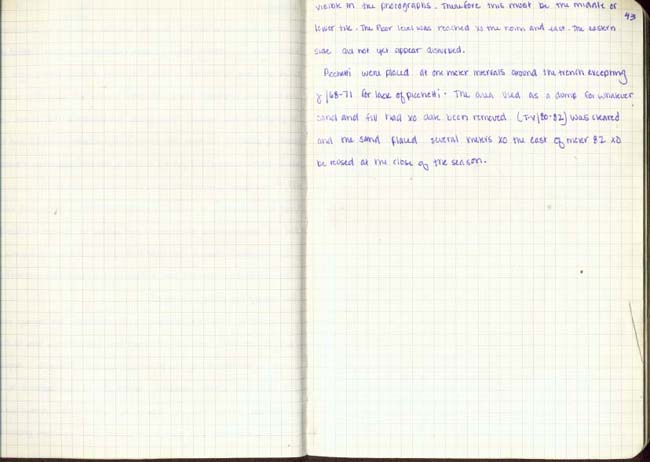 visible in the photographs. Therefore this must be the middle of
43
lower tile. The floor level was reached to the north and east. The eastern
side did not yet appear disturbed.
Picchetti were placed at one meter intervals around the trench excepting
y/68-71 for lack of picchetti. The area used as a dump for whatever
sand and fill had to date been removed (T-V/80-82) was cleared
and the sand placed several meters to the east of meter 82 to
be reused at the close of the season.